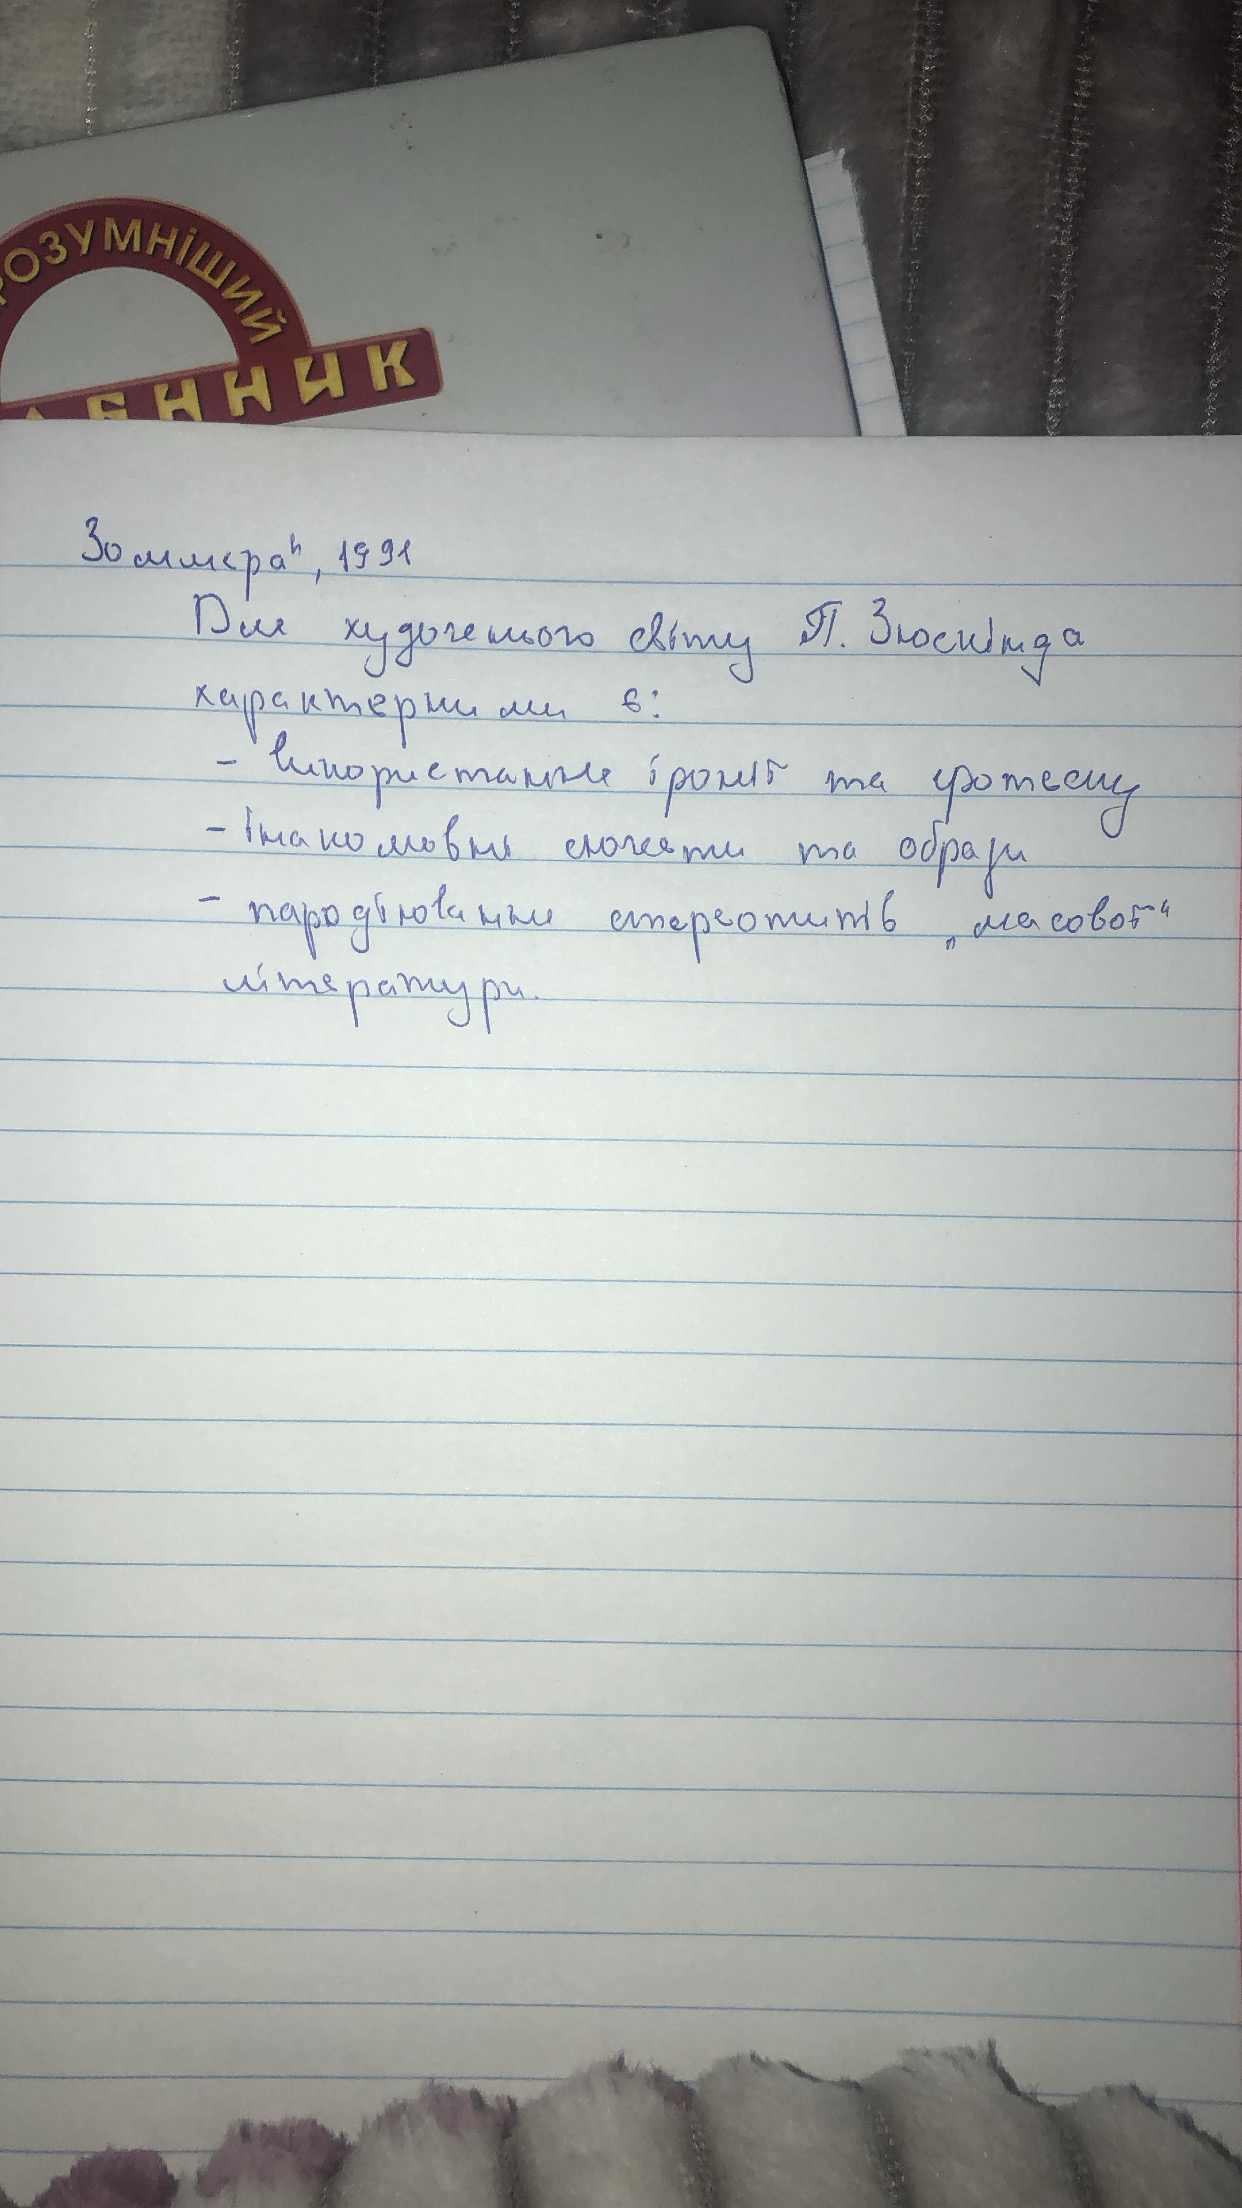 РОЗУМНІШИЙ
ЕННИК
Зоммера", 1991
Для художнього світу П. Зюскінда
характерними є:
- використання іронії та гротеску
- інакомовні сюжети та образи
- пародіювання стереотипів „масової"
літератури.